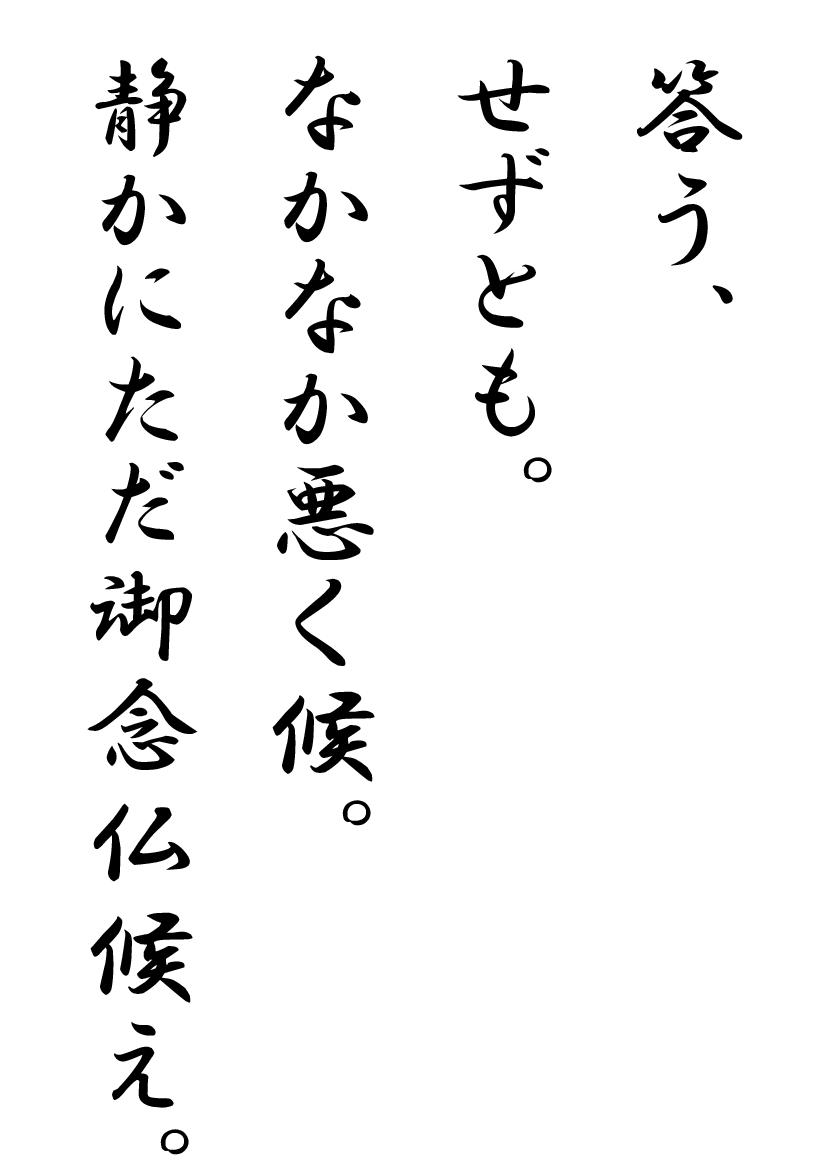 答う、
せずとも。
なかなか悪く候。
静かにただ御念仏候え。